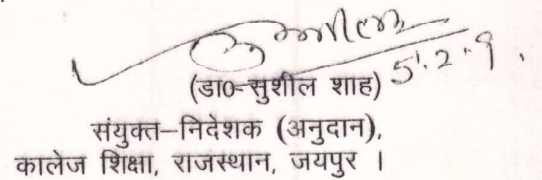 5.2.9.
(डा०-सुशील शाह)
संयुक्त-निदेशक (अनुदान),
कालेज शिक्षा, राजस्थान, जयपुर ।